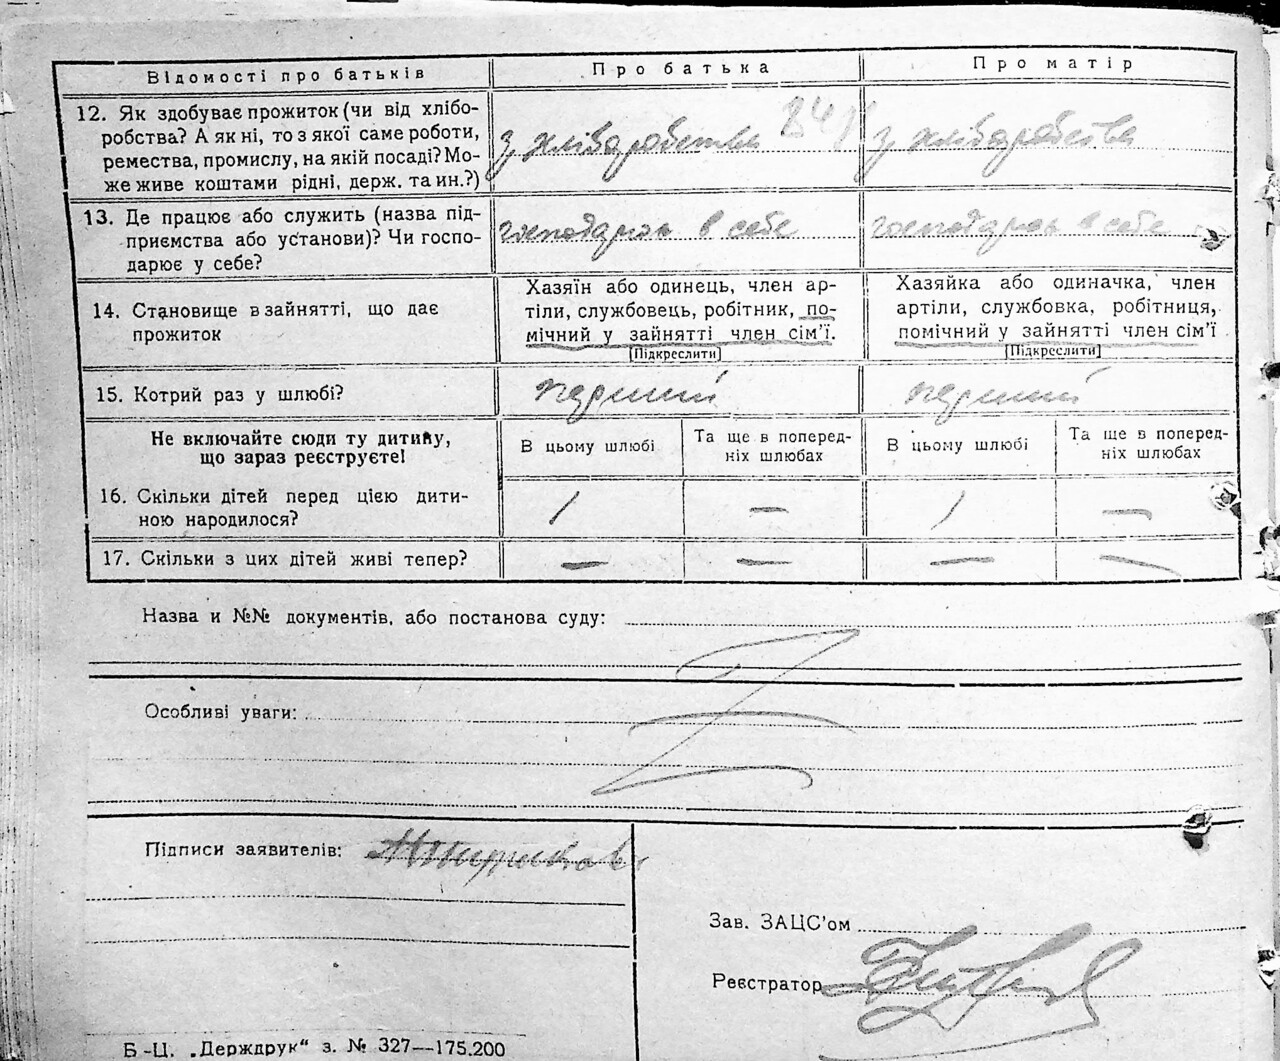 Відомості про батьків
Про батька
Про матір
12. Як здобуває прожиток (чи від хлібо-
робства? А як ні, то з якої саме роботи,
ремества, промислу, на якій посаді? Мо-
же живе коштами рідні, держ. та ин.?)
з хліборобства
з хліборобства
13. Де працює або служить (назва під-
приємства або установи)? Чи госпо-
дарює у себе?
господарює в себе
господарює в себе
14. Становище в зайнятті, що дає
прожиток
Хазяїн або одинець, член ар-
тіли, службовець, робітник, по-
мічний у зайнятті член сім'ї.
[Підкреслити]
Хазяйка або одиначка, член
артіли, службовка, робітниця,
помічний у зайнятті член сім'ї
[Підкреслити]
15. Котрий раз у шлюбі?
перший
перший
Не включайте сюди ту дитину,
що зараз реєструєте!
В цьому шлюбі
Та ще в поперед-
ніх шлюбах
В цьому шлюбі
Та ще в поперед-
ніх шлюбах
16. Скільки дітей перед цією дити-
ною народилося?
1 — 1 —
17. Скільки з цих дітей живі тепер?
— — — —
Назва и №№ документів, або постанова суду:
Особливі уваги:
Підписи заявителів:
Зав. ЗАЦС'ом
Реєстратор
Б-Ц. „Держдрук“ з. № 327—175.200